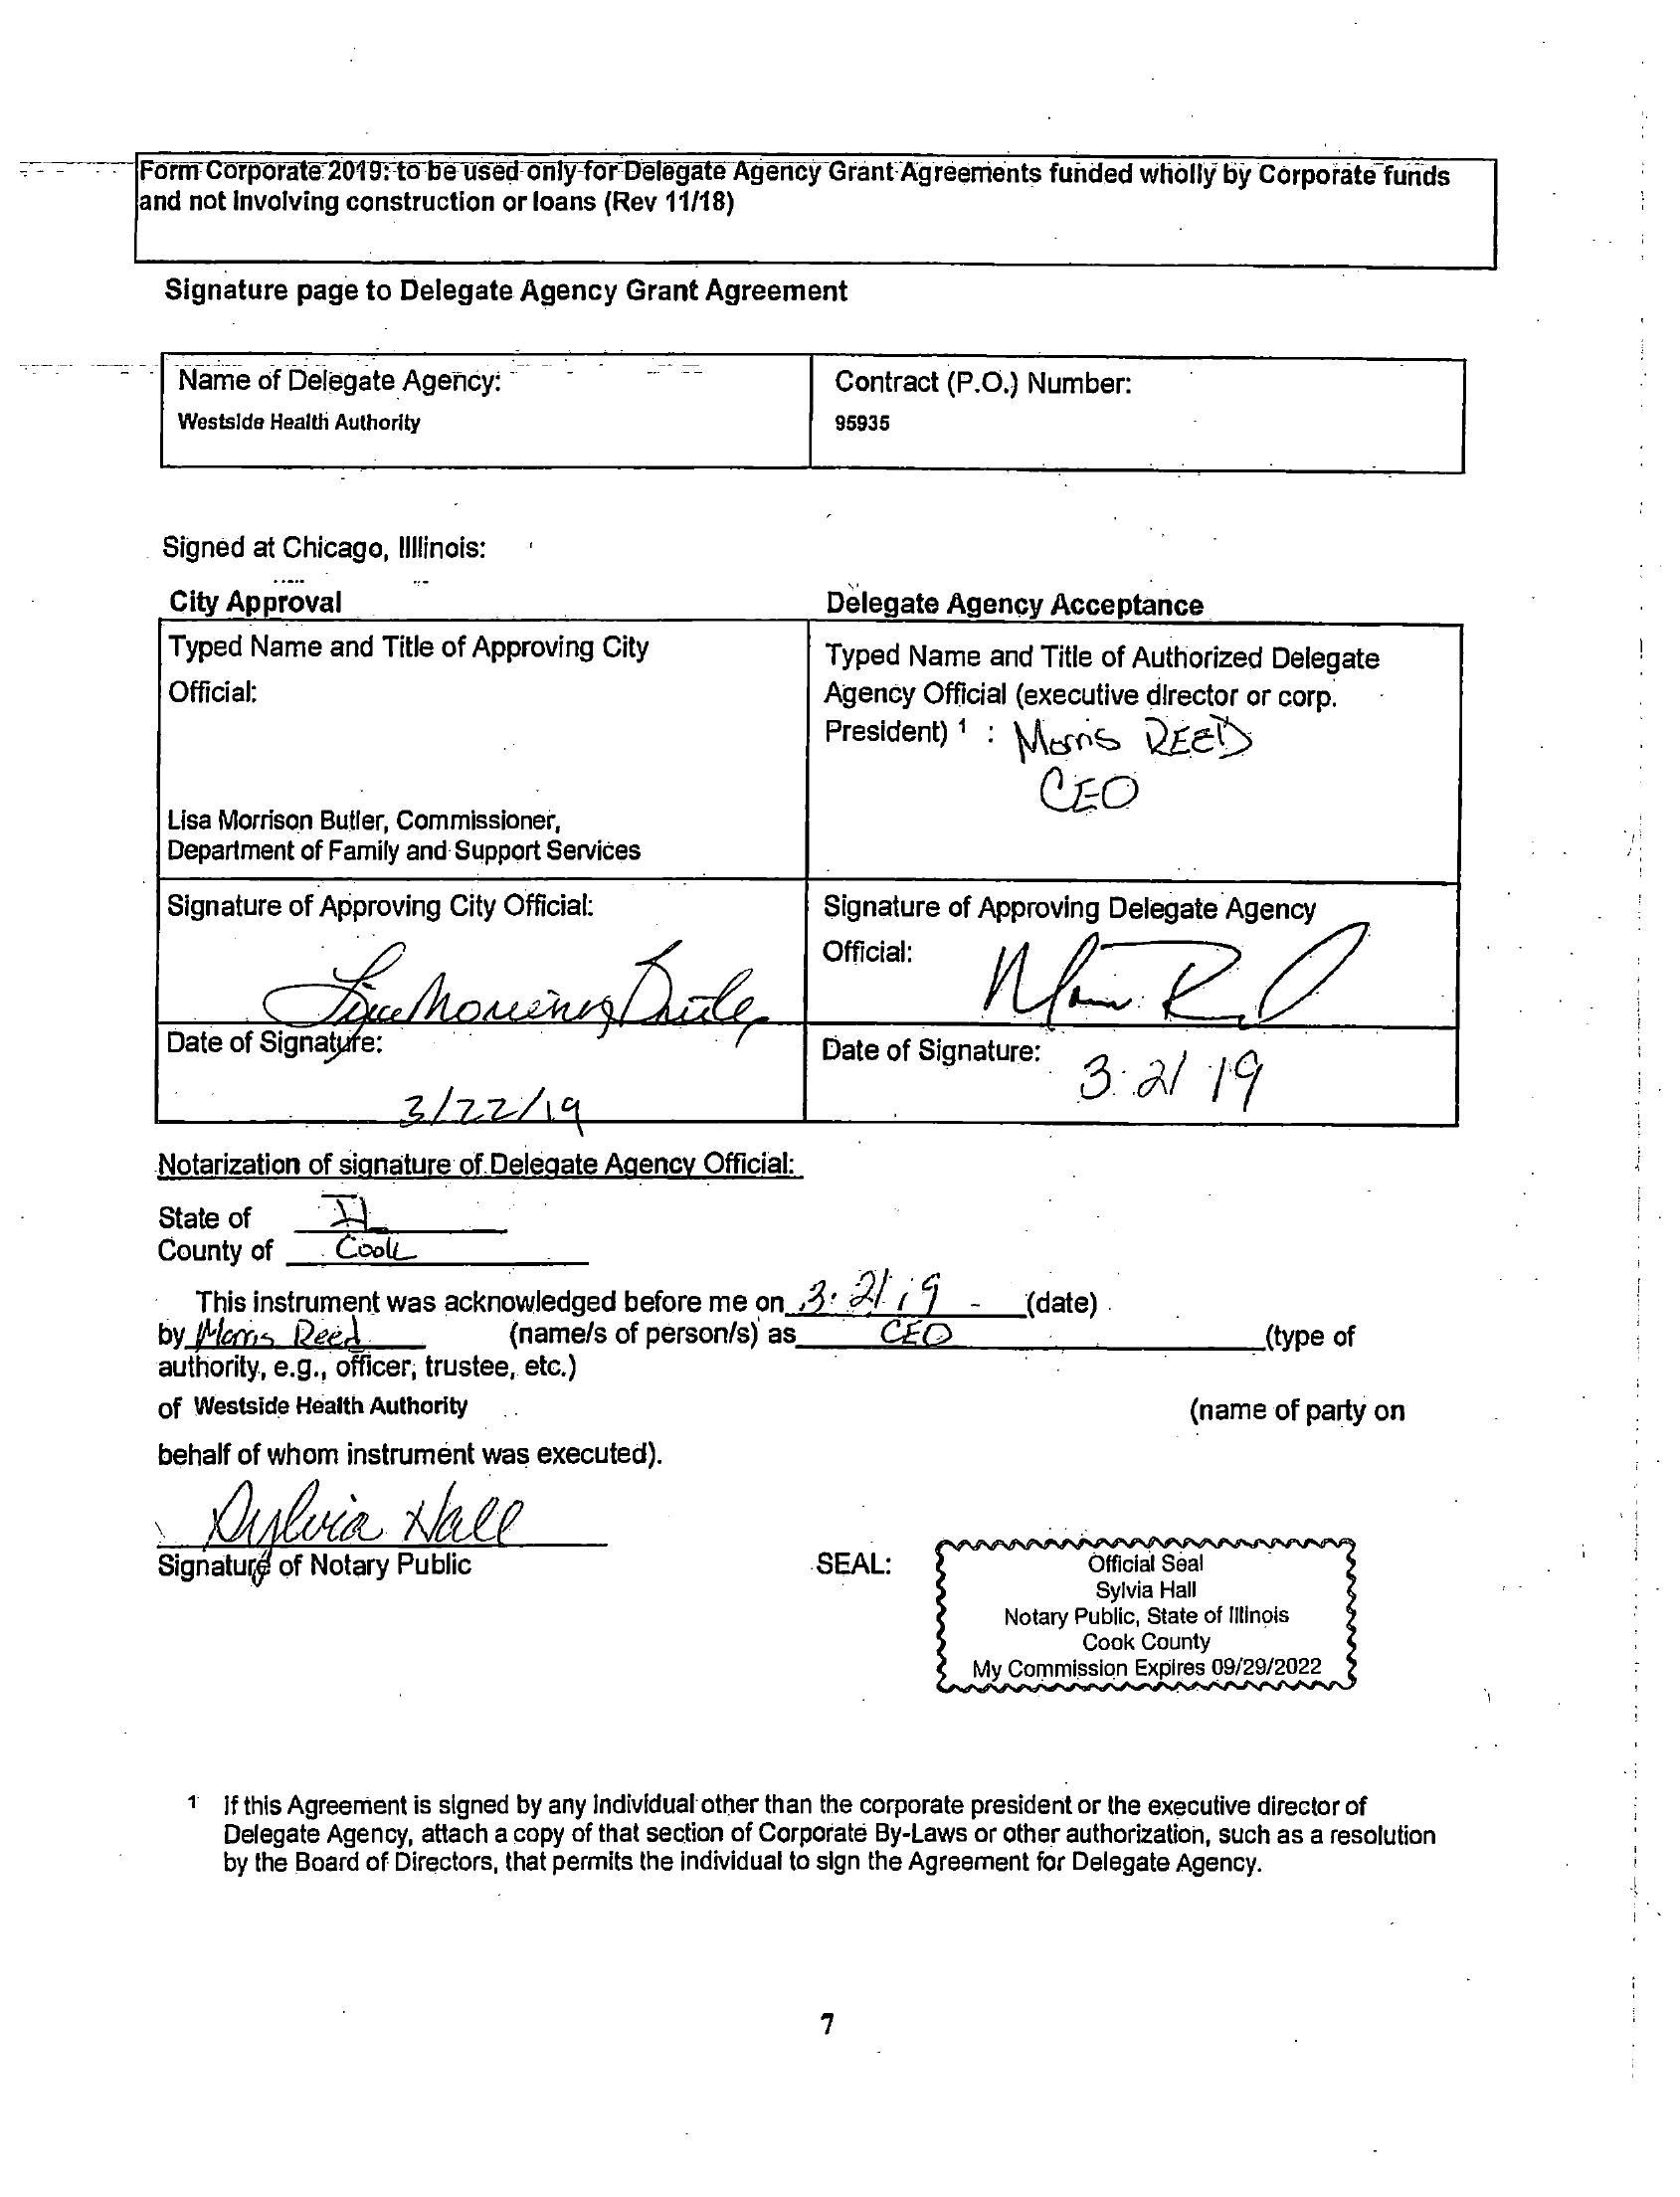 Form Corporate 2019: to be used only for Delegate Agency Grant Agreements funded wholly by Corporate funds
and not involving construction or loans (Rev 11/18)
Signature page to Delegate Agency Grant Agreement
Name of Delegate Agency:
Westside Health Authority
Contract (P.O.) Number:
95935
Signed at Chicago, Illlinois:
City Approval
Typed Name and Title of Approving City
Official:
Lisa Morrison Butler, Commissioner,
Department of Family and Support Services
Signature of Approving City Official:
Lisa Morrison Butler
Date of Signature:
3/22/19
Delegate Agency Acceptance
Typed Name and Title of Authorized Delegate
Agency Official (executive director or corp.
President) 1 : Morris REED
CEO
Signature of Approving Delegate Agency
Official:
Date of Signature: 3.21 19
Notarization of signature of Delegate Agency Official:
State of IL
County of Cook
This instrument was acknowledged before me on 3.21 19 - (date)
by Morris Reed (name/s of person/s) as CEO (type of
authority, e.g., officer, trustee, etc.)
of Westside Health Authority (name of party on
behalf of whom instrument was executed).
Sylvia Hall
Signature of Notary Public
SEAL:
Official Seal
Sylvia Hall
Notary Public, State of Illinois
Cook County
My Commission Expires 09/29/2022
1 If this Agreement is signed by any individual other than the corporate president or the executive director of
Delegate Agency, attach a copy of that section of Corporate By-Laws or other authorization, such as a resolution
by the Board of Directors, that permits the individual to sign the Agreement for Delegate Agency.
7